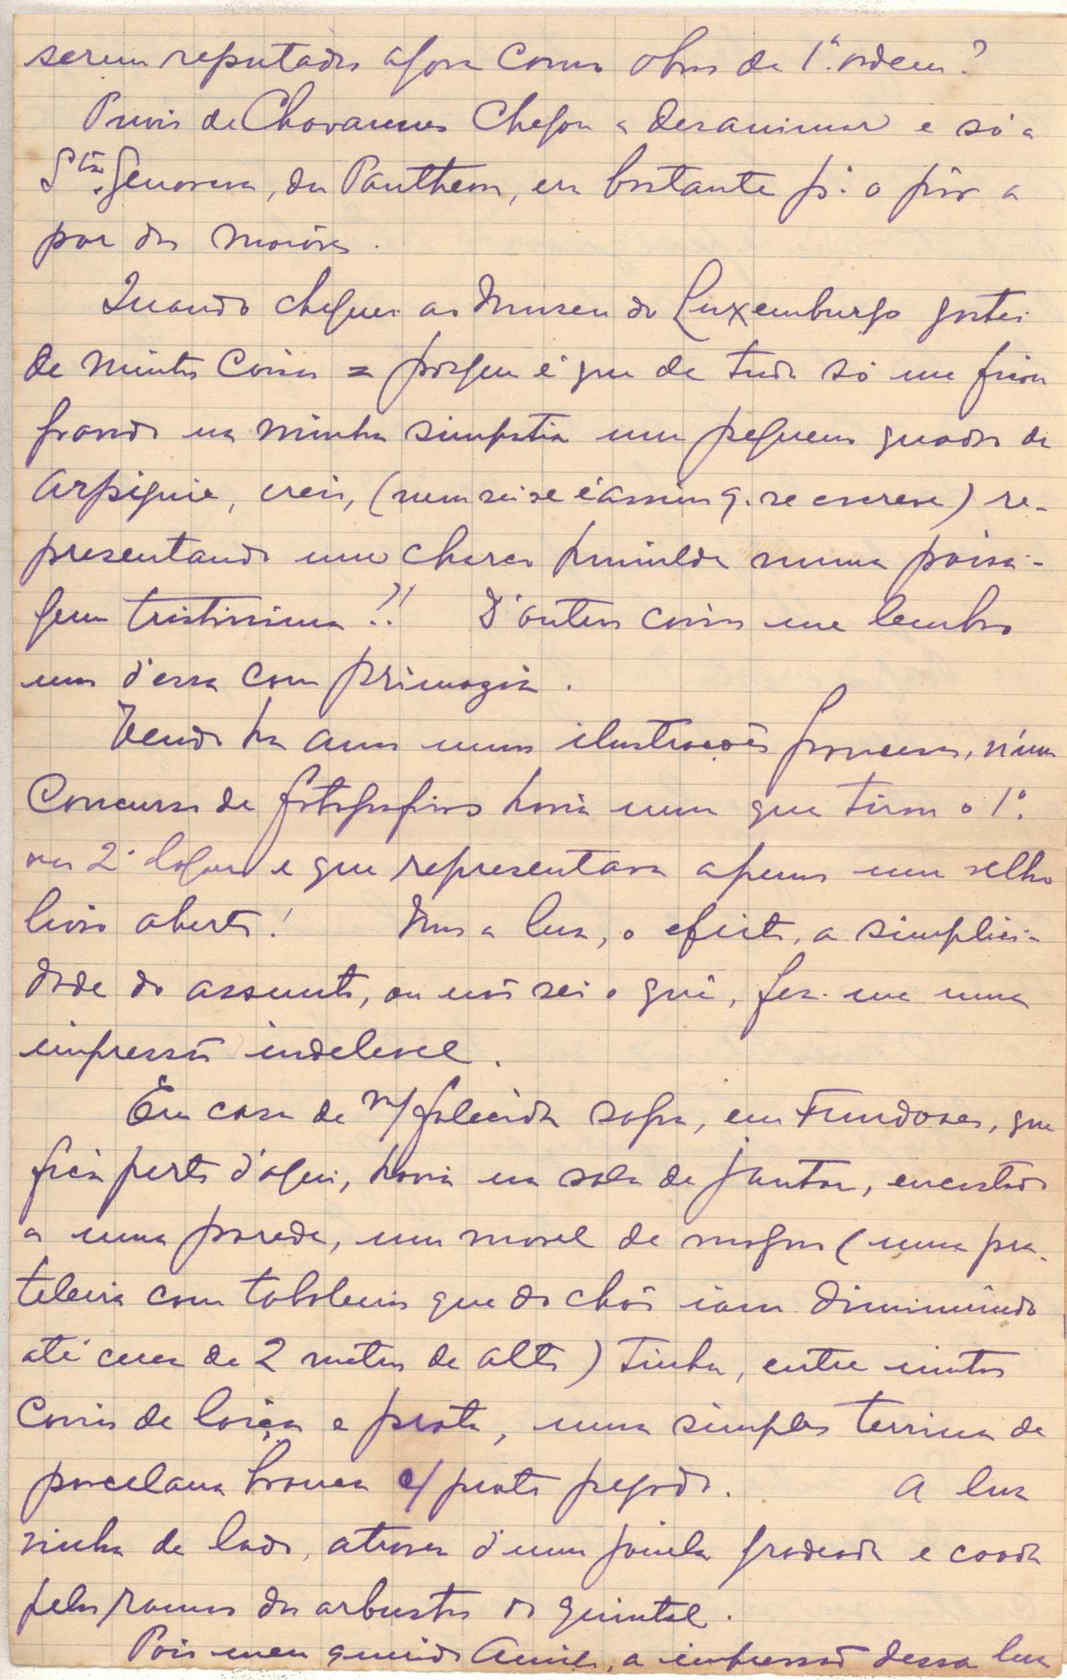 serem reputados agora como obras de 1.ª ordem?
Puvis de Chavannes chegou a desanimar e só a
Sta. Genoveva, do Pantheon, era bastante pª. o pôr a
par dos maiores.
Quando cheguei ao Museu do Luxemburgo gostei
de muitas coisas = porque é que de tudo só me ficou
gravado na minha simpatia um pequeno quadro de
Arpignie, creio, (nem sei se é assim q. se escreve) re-
presentando um charco humilde numa paisa-
gem tristissima?!! D'outras coisas me lembro
mas d'essa com primazia.
Vendo ha anos umas ilustrações francesas, n'um
Concurso de fotografias havia uma que tirou o 1.º
ou 2.º logar e que representava apenas um velho
livro aberto! Mas a luz, o efeito, a simplici-
dade do assunto, ou não sei o quê, fez-me uma
impressão indelevel.
Em casa de m/ falecida sogra, em Fundoaes, que
fica perto d'aqui, havia na sala de jantar, encostado
a uma parede, um movel de mogno (uma pra-
teleira com taboleiros que do chão iam diminuindo
até cerca de 2 metros de alto) Tinha, entre muitas
coisas de loiça e prata, uma simples terrina de
porcelana branca c/ prato pegado. A luz
vinha de lado, atravez d'uma janela gradeada e coada
pelos ramos dos arbustos do quintal.
Pois meu querido Amigo, a impressão dessa luz